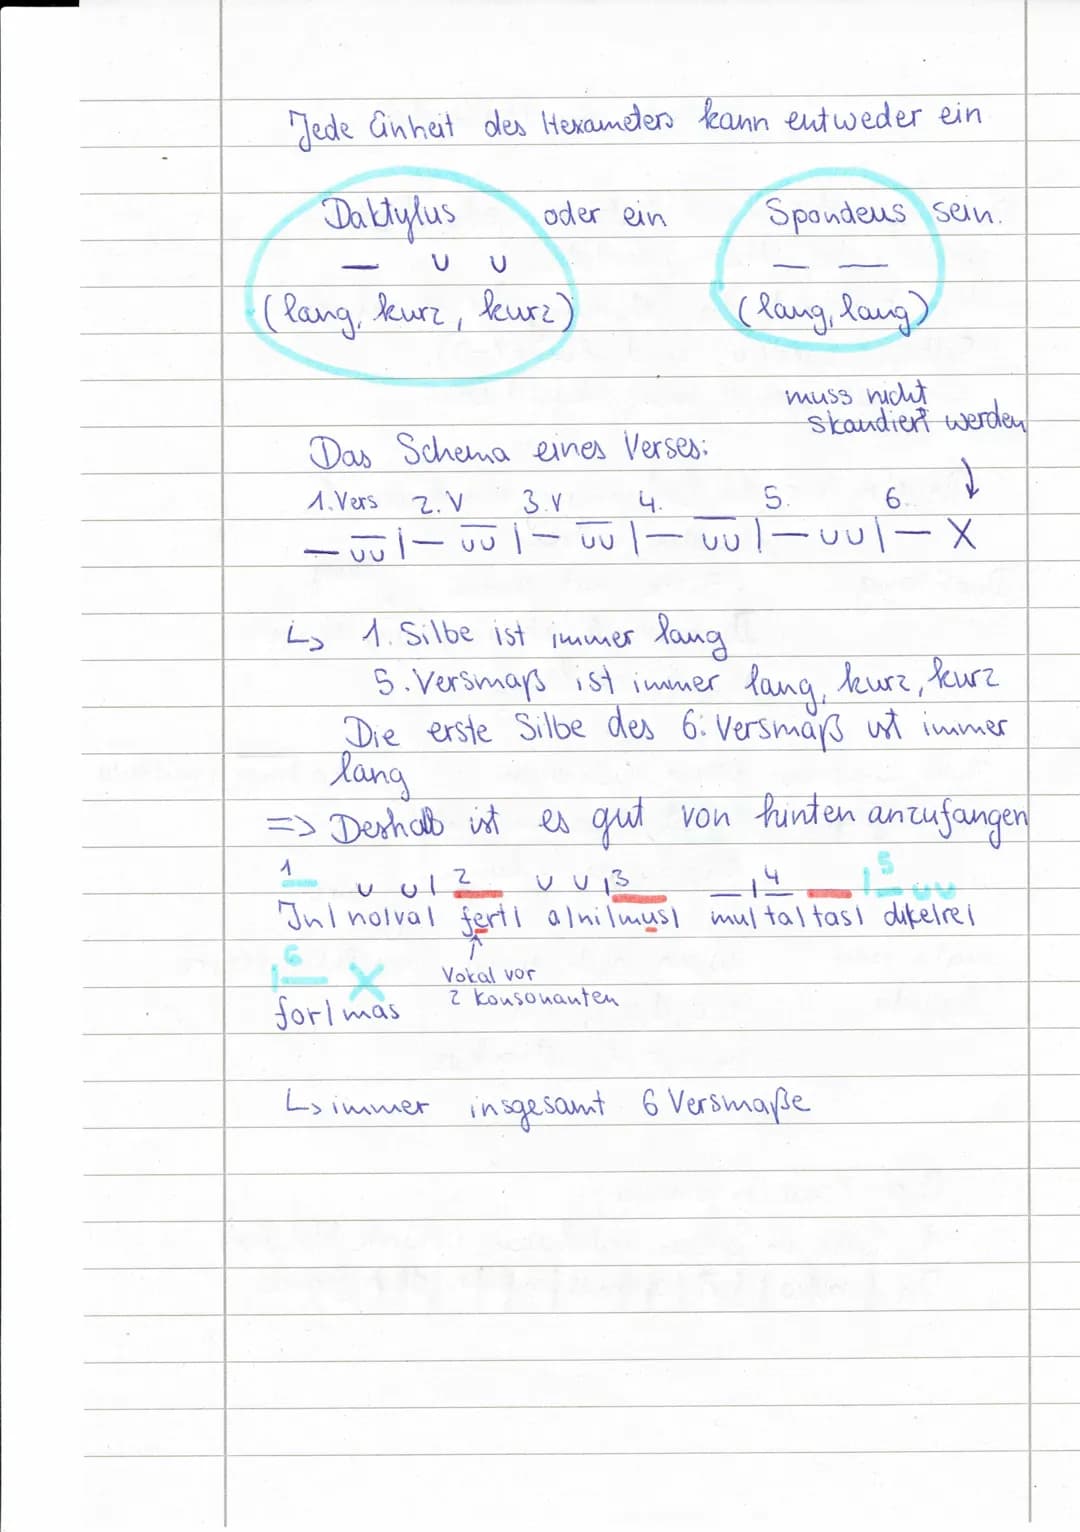 Jede Einheit des Hexameters kann entweder ein
Daktylus oder ein Spondeus sein.
— ᴗ ᴗ — —
(lang, kurz, kurz) (lang, lang)
muss nicht
skandiert werden
Das Schema eines Verses:
1. Vers 2. V 3. V 4. 5. 6. ↓
— ᴗ̅ᴗ̅ | — ᴗ̅ᴗ̅ | — ᴗ̅ᴗ̅ | — ᴗ̅ᴗ̅ | — ᴗᴗ | — X
↳ 1. Silbe ist immer lang
5. Versmaß ist immer lang, kurz, kurz
Die erste Silbe des 6. Versmaß ist immer
lang
=> Deshalb ist es gut von hinten anzufangen
1 — ᴗ ᴗ | 2 — ᴗ ᴗ | 3 — — | 4 — — | 5 — ᴗᴗ
In| no|va| fert| a|ni|mus| mu|ta|tas| dike|re|
| 6 — X
for| mas
↑
Vokal vor
2 Konsonanten
↳ immer insgesamt 6 Versmaße